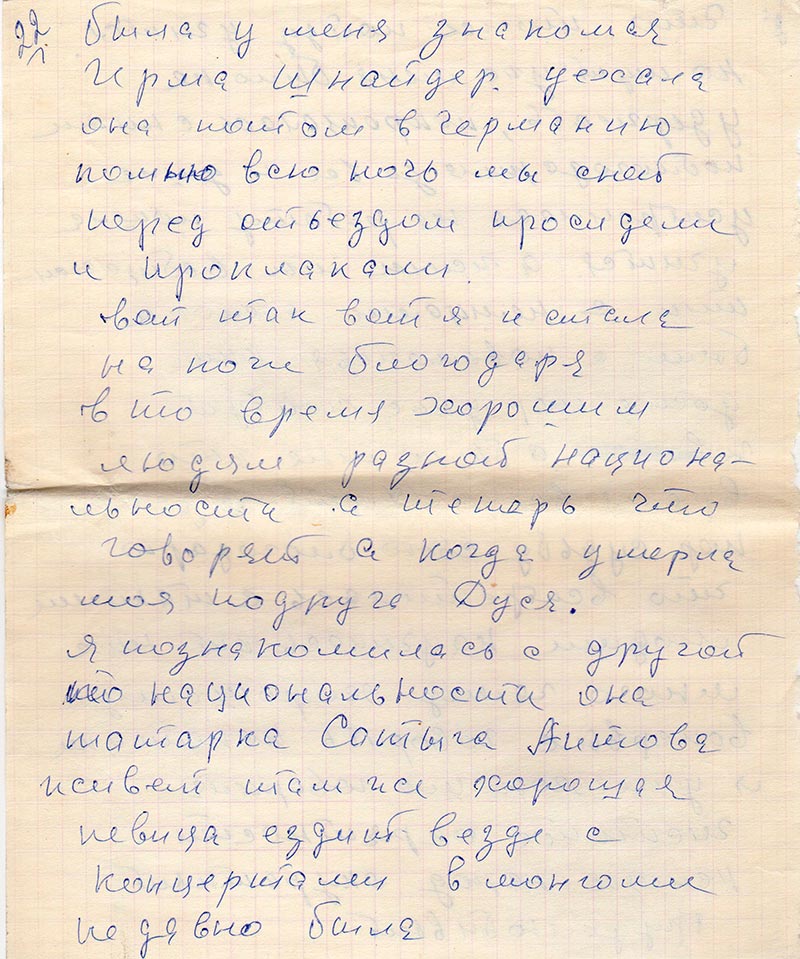 22 л.
была у меня знакомая
Ирма Шнайдер. уехала
она потом в Германию
помню всю ночь мы с ней
перед отъездом просидели
и проплакали.
вот итак вот я и стала
на ноги благодаря
в то время хорошим
людям разной национа-
льности а теперь что
говорят а когда умерла
моя подруга Дуся.
я познакомилась с другой
по национальности она
татарка Сотыга Аитова
живет там же хорошая
певица ездит везде с
концертами в монголии
недавно была